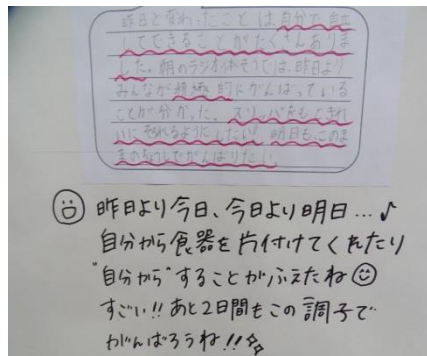 昨日と変わったことは、自分で、自立
してできることがたくさんありま
した。朝のラジオ体そうでは、昨日より
みんなが積極的にがんばっている
ことが分かった。スリッパをもっときれ
いにそろえるようにしたい!明日も、このま
まのちょうしでがんばりたい。
昨日より今日、今日より明日…♪
自分から食器を片付けてくれたり
"自分から"することがふえたね
すごい!!あと2日間もこの調子で
がんばろうね!!